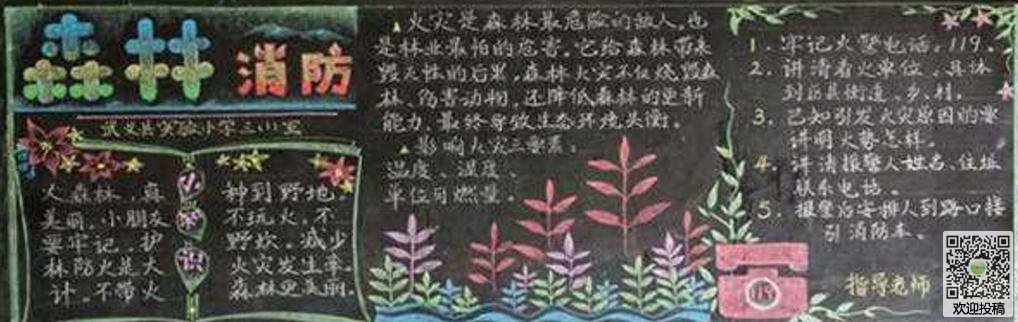 森林 消防
武义县实验小学三(1)室
小常识
大森林,真
美丽,小朋友
要牢记,护
林防火是大
计,不带火
种到野地。
不玩火,不
野炊,减少
火灾发生率,
森林更美丽。
▲火灾是森林最危险的敌人,也
是林业最怕的危害,它给森林带来
毁灭性的后果,森林火灾不仅烧毁森
林、伤害动物,还降低森林的更新
能力,最终导致生态环境失衡。
▲影响火灾三要素:
温度、湿度、
单位可燃量。
1、牢记火警电话:119。
2、讲清着火单位、具体
到区县街道、乡、村。
3、已知引发火灾原因的要
讲明火势怎样。
4、讲清报警人姓名、住址
联系电话。
5、报警后安排人到路口接
引消防车。
119
指导老师
欢迎投稿